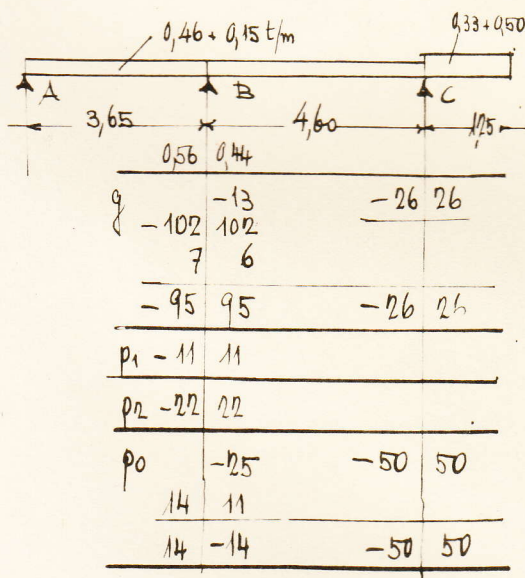 0,46 + 0,15 t/m
0,33 + 0,50
A B C
3,65 4,60 1,25
0,56 0,44
-13 -26 26
g
-102 102
7 6
-95 95 -26 26
p1 -11 11
p2 -22 22
p0 -25 -50 50
14 11
14 -14 -50 50